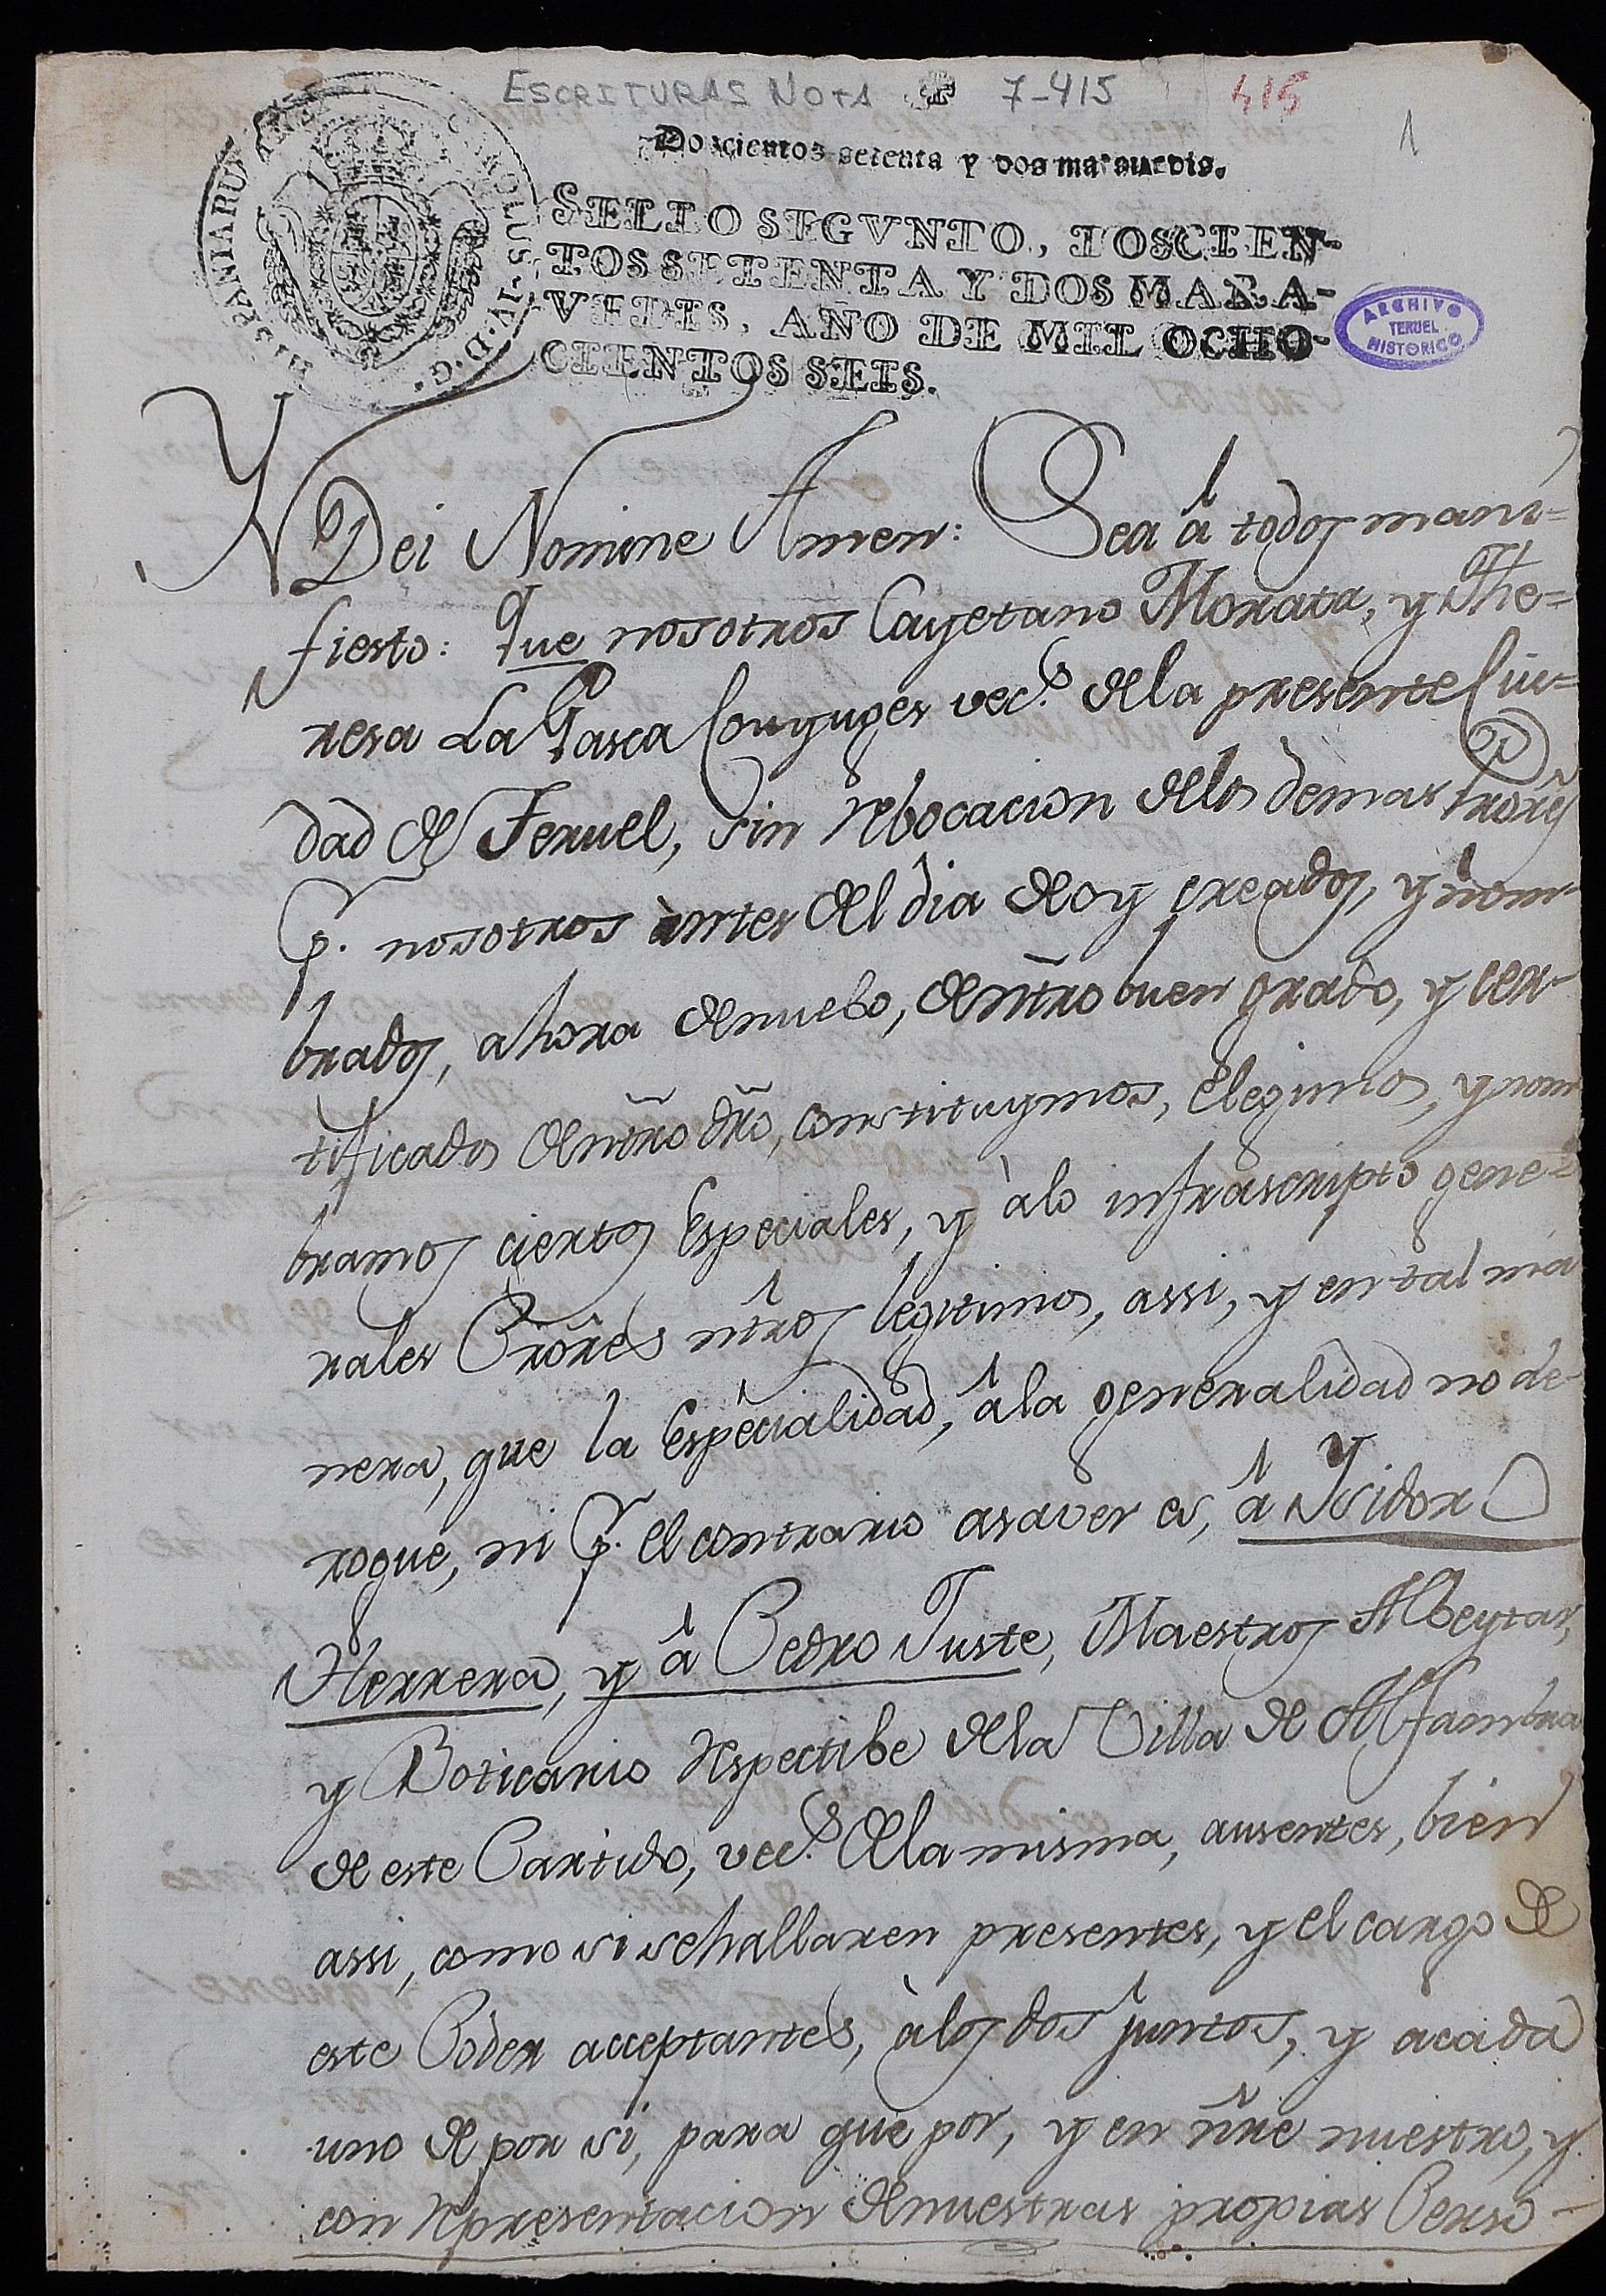 ESCRITURAS NOTA 7-415 415 1
Doscientos setenta y dos marauedis.
HISPANIARUM CAROLUS·IV·D·G·
SELLO SEGVNDO, DOSCIEN-
TOS SETENTA Y DOS MARA-
VEDIS, AÑO DE MIL OCHO-
CIENTOS SEIS.
ARCHIVO
TERUEL
HISTORICO
YN Dei Nomine Amen: Sea â todos mani=
fiesto: Que nosotros Cayetano Morata, y The=
resa La Gasca Conyuges vec.s dela presente Ciu=
dad de Teruel, sin rebocacion delos demas Prores
p.r nosotros àntes del dia deoy creados, y nom-
brados, ahora denuebo, de ntro buen grado, y cer-
tificados de ntro dro, constituymos, elegimos, y nom
bramos ciertos Especiales, y àlo infrascripto gene=
rales Prores ntros legitimos, assi, y en tal ma
nera, que la Especialidad, âla generalidad no de-
rogue, ni p.r el contrario asaver es, â Ysidor
Herrera, y â Pedro Juste, Maestros Albeytar,
y Boticario respectibe dela Villa de Alfambra
de este Partido, vec.s dela misma, ausentes, bien
assi, como si sehallaren presentes, y el cargo de
este Poder acceptantes, àlos dos juntos, y acada
uno de por si, para que por, y en ñre nuestro, y
con representacion denuestras propias Perso-